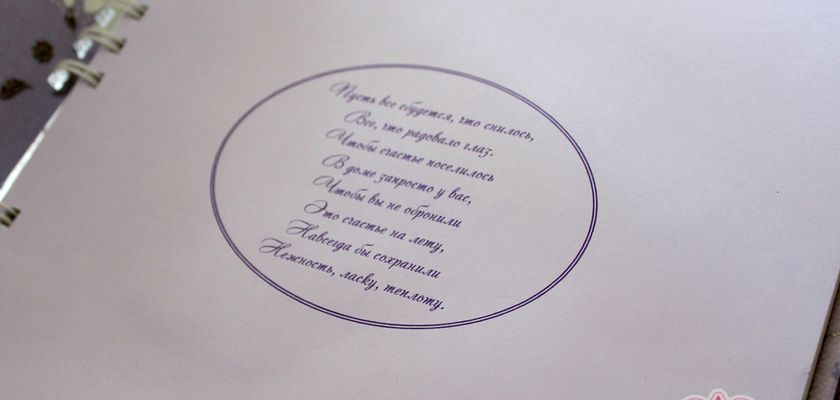 Пусть все сбудется, что снилось,
Все, что радовало глаз.
Чтобы счастье поселилось
В доме запросто у вас,
Чтобы вы не обронили
Это счастье на лету,
Навсегда бы сохранили
Нежность, ласку, теплоту.